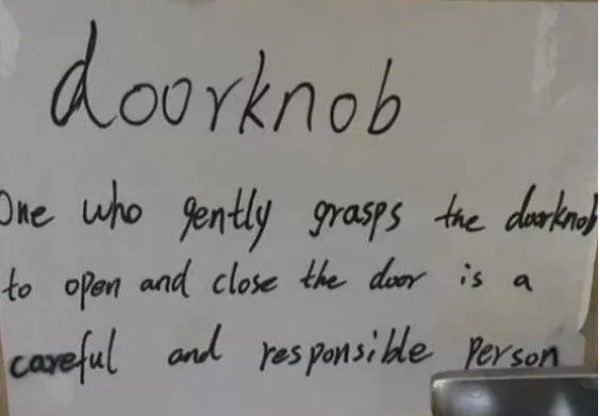 doorknob
One who gently grasps the doorknob
to open and close the door is a
careful and responsible person